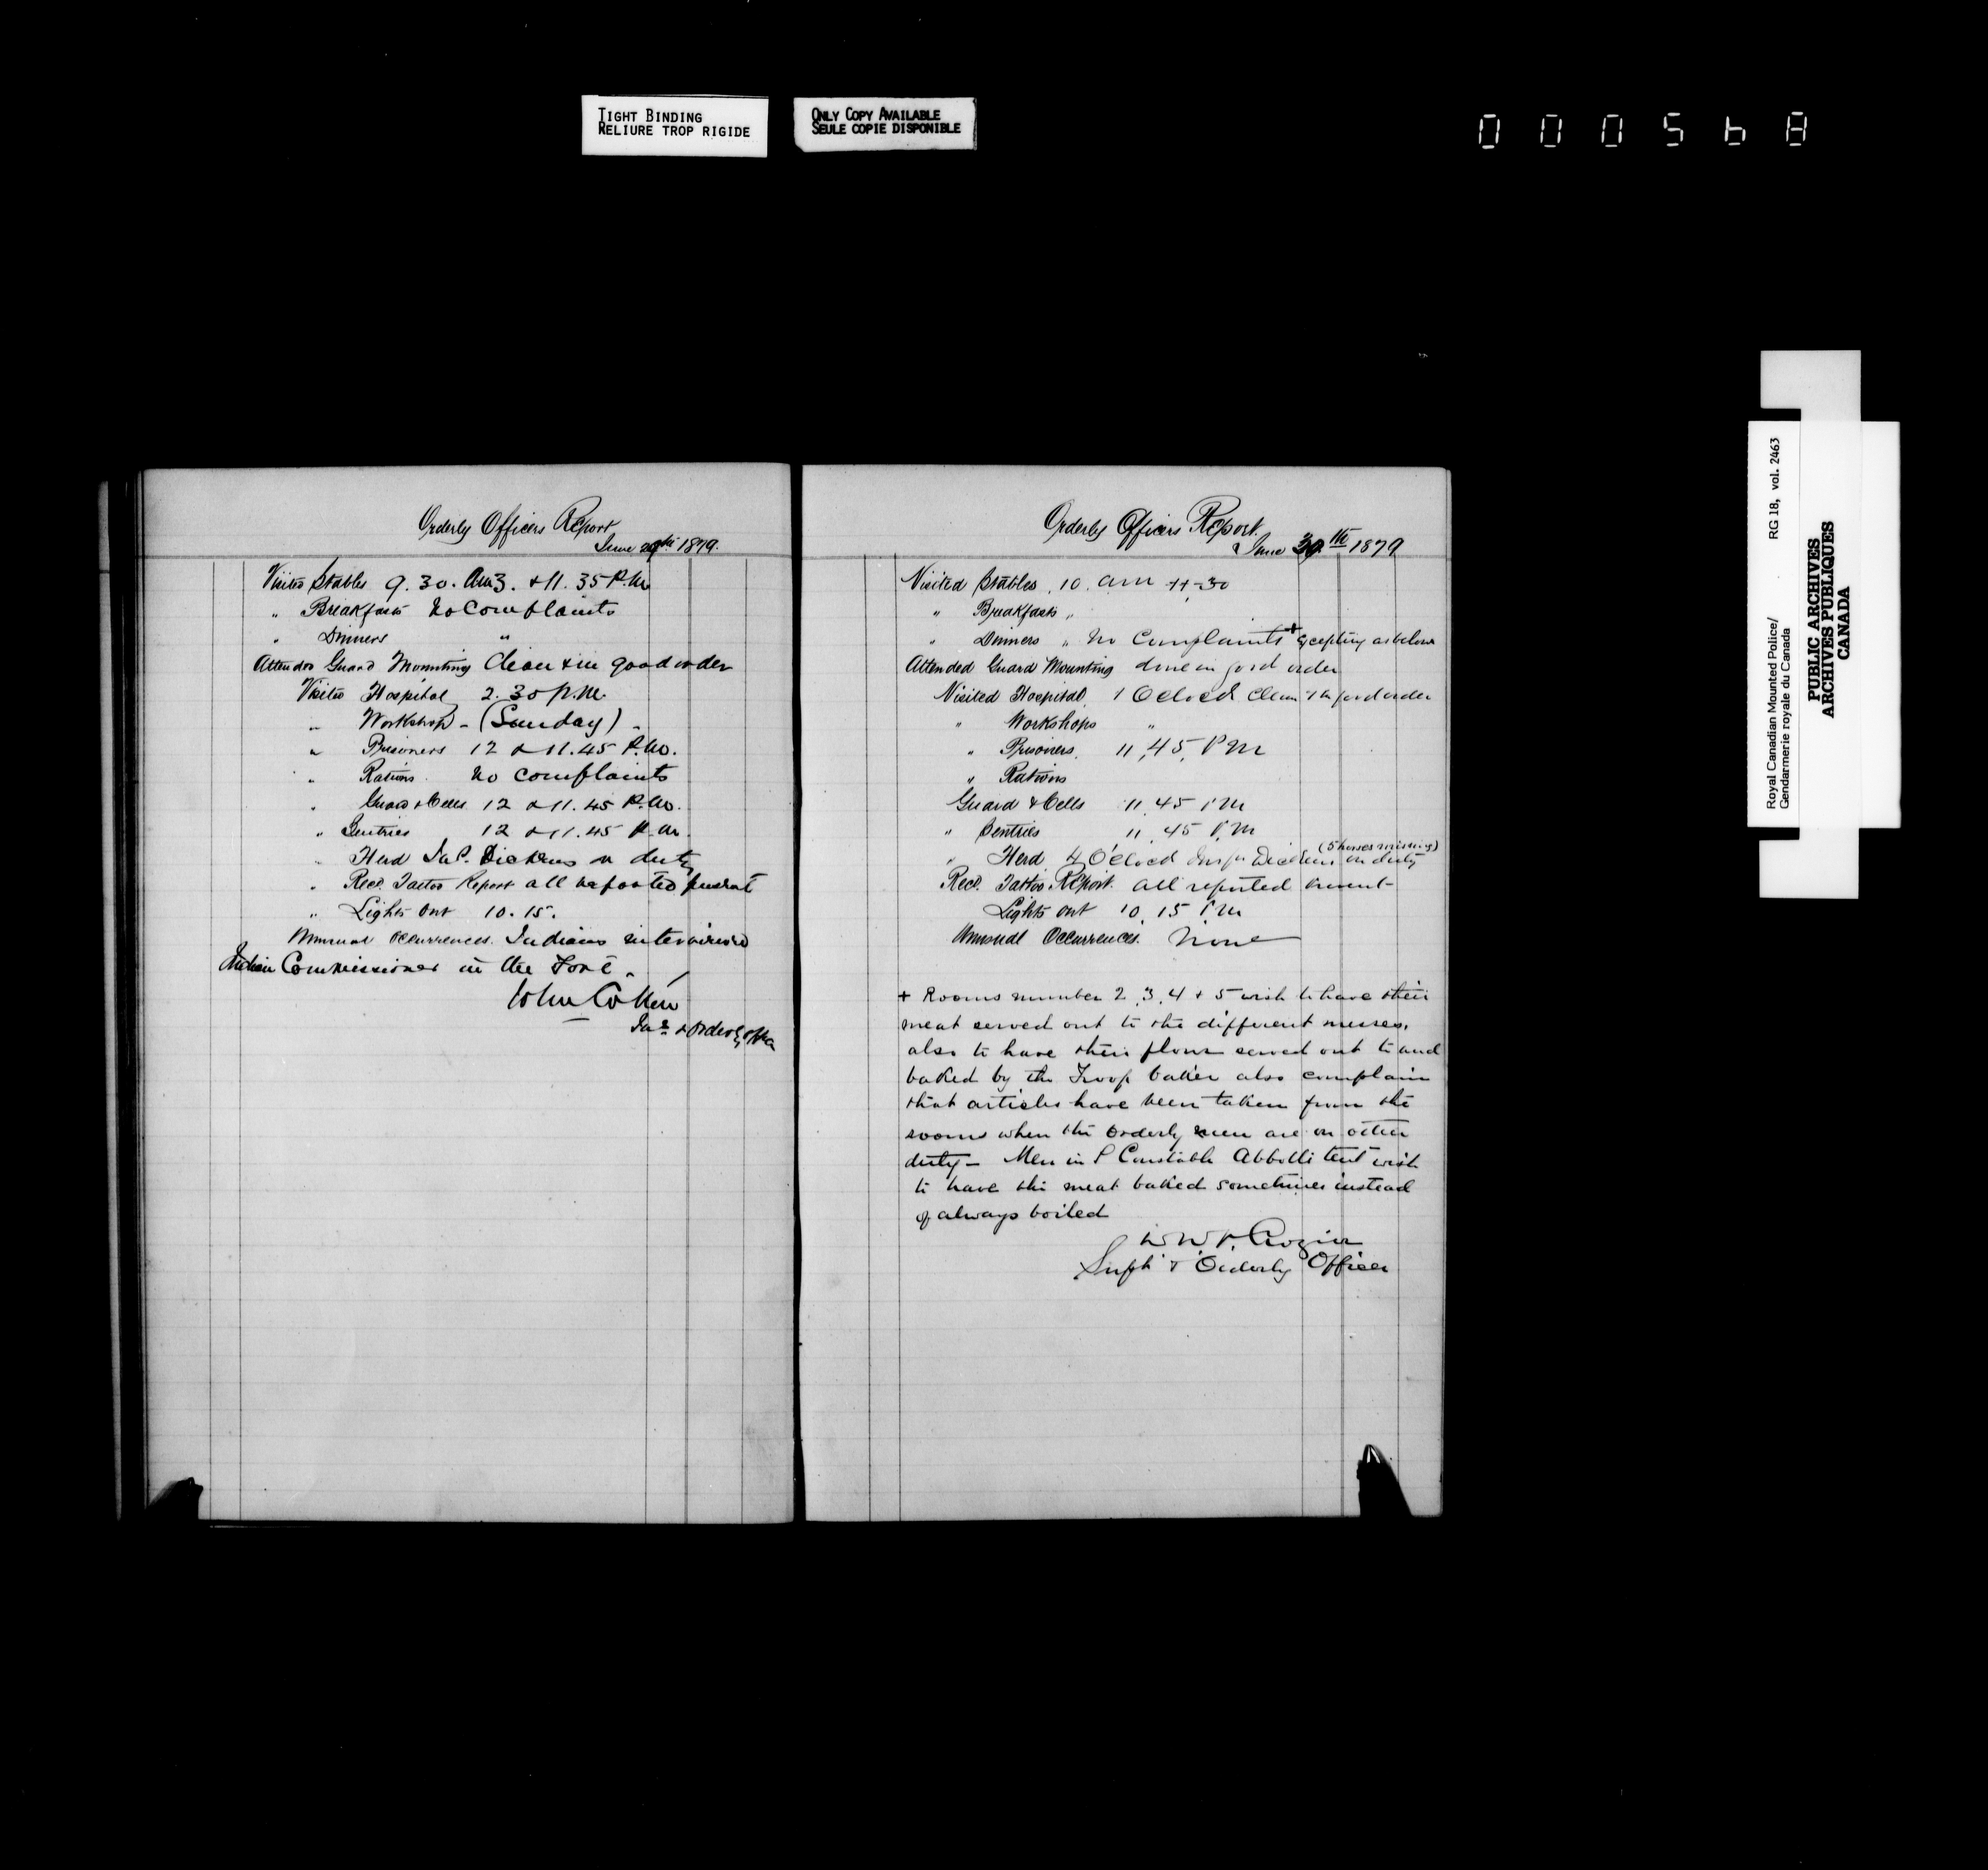 TIGHT BINDING
RELIURE TROP RIGIDE
ONLY COPY AVAILABLE
SEULE COPIE DISPONIBLE
000568
Orderly Officers Report
June 29th 1879.
Visited Stables 9.30. Am 3. & 11.35 P.M
" Breakfasts No Complaints
" Dinners "
Attended Guard Mounting Clean & in good order
Visited Hospital 2.30 p.m.
" Workshop - (Sunday) -
" Prisoners 12 & 11.45 P.M.
" Rations. No complaints
" Guard & Cells 12 & 11.45 P.M.
" Sentries 12 & 11.45 P.M.
" Herd Dickens on duty
" Recd. Tattoo Report all reported present
" Lights Out 10.15.
Unusual Occurrences. Indians interviewed
Indian Commissioner in the Fort.
John Cotton
& Orderly
Orderly Officers Report.
June 30th 1879
Visited Stables. 10. am 11-30
" Breakfasts "
" Dinners " No Complaints + excepting as below
Attended Guard Mounting done in good order
Visited Hospital, 1 Oclock Clean & in good order
" Workshops "
" Prisoners. 11,45, PM
" Rations
Guard & Cells 11,45 PM
" Sentries 11,45 P.M
(5 horses missing)
" Herd 4 O'clock Inspr Dickens on duty
Recd. Tattoo Report. all reported present-
Lights out 10,15 P.M
Unusual Occurrences. None
+ Rooms number 2,3,4 & 5 wish to have their
meat served out to the different messes,
also to have their flour served out to and
baked by the Troop baker also complain
that articles have been taken from the
rooms when the orderly men are on other
duty- Men in S Constable Abbotts tent wish
to have the meat baked sometimes instead
of always boiled
Crozier
Supt & Orderly Officer
Royal Canadian Mounted Police/ RG 18, vol. 2463
Gendarmerie royale du Canada
PUBLIC ARCHIVES
ARCHIVES PUBLIQUES
CANADA